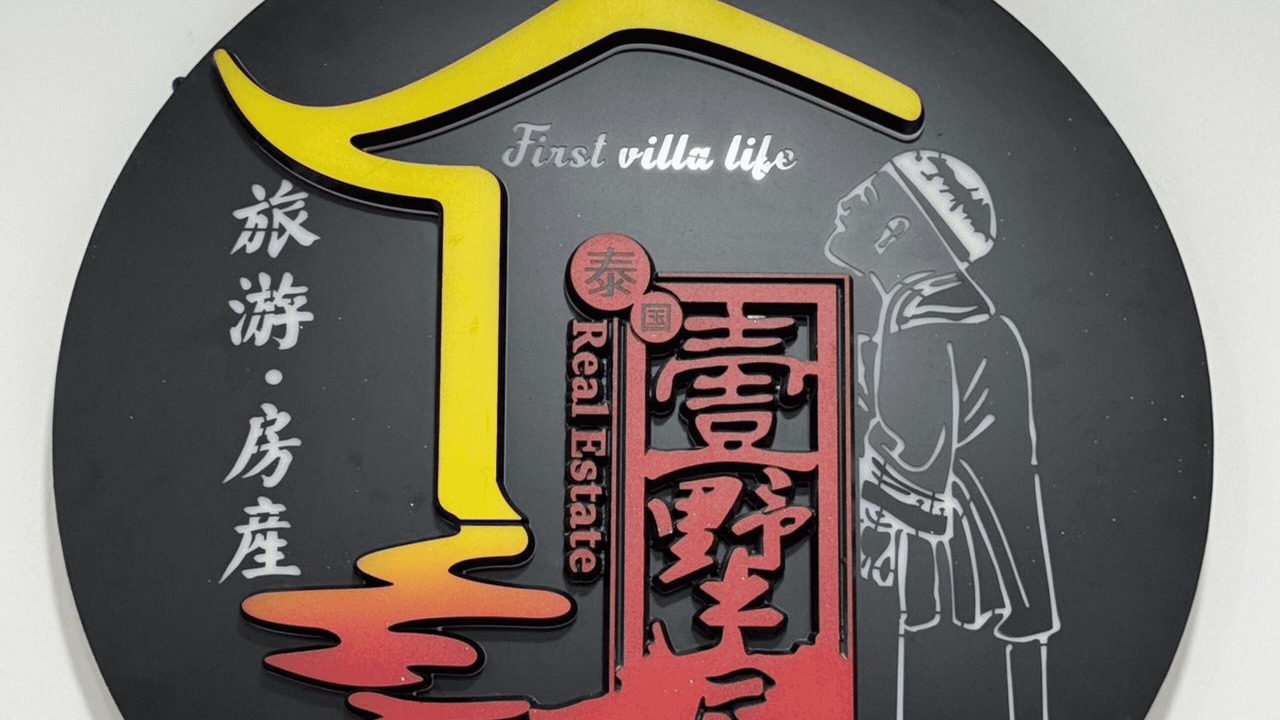 First villa life
旅游·房産
泰国
Real Estate
壹墅